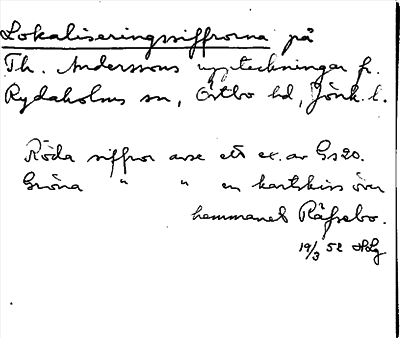 Lokaliseringssiffrorna på
Th. Anderssons uppteckningar fr.
Rydaholms sn, Östbo hd, Jönk. l.
Röda siffror avse ett ex. av Gs 20.
Gröna " " en kartskiss över
hemmanet Räfsebo.
19/3 52 HLg